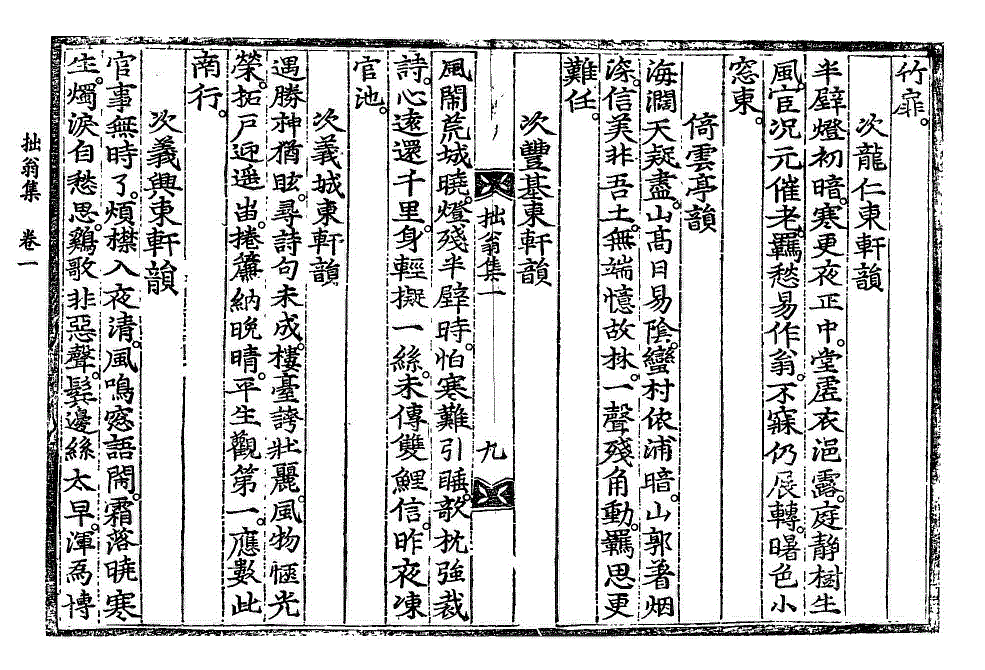 竹扉。
次龍仁東軒韻
半壁燈初暗。寒更夜正中。堂虛衣浥露。庭靜樹生
風。宦況元催老。羈愁易作翁。不寐仍展轉。曙色小
窓東。
倚雲亭韻
海濶天疑盡。山高日易陰。蠻村依浦暗。山郭著烟
深。信美非吾土。無端憶故林。一聲殘角動。羈思更
難任。
次豐基東軒韻
拙翁集一
九
風鬧荒城曉。燈殘半壁時。怕寒難引睡。欹枕強裁
詩。心遠還千里。身輕擬一絲。未傳雙鯉信。昨夜凍
官池。
次義城東軒韻
遇勝神猶眩。尋詩句未成。樓臺誇壯麗。風物愜光
榮。拓戶迎遙岀。捲簾納晩晴。平生觀第一。應數此
南行。
次義興東軒韻
官事無時了。煩襟入夜淸。風鳴窓語鬧。霜落曉寒
生。燭淚自愁思。鷄歌非惡聲。鬂邊絲太早。渾爲博
拙翁集　卷一